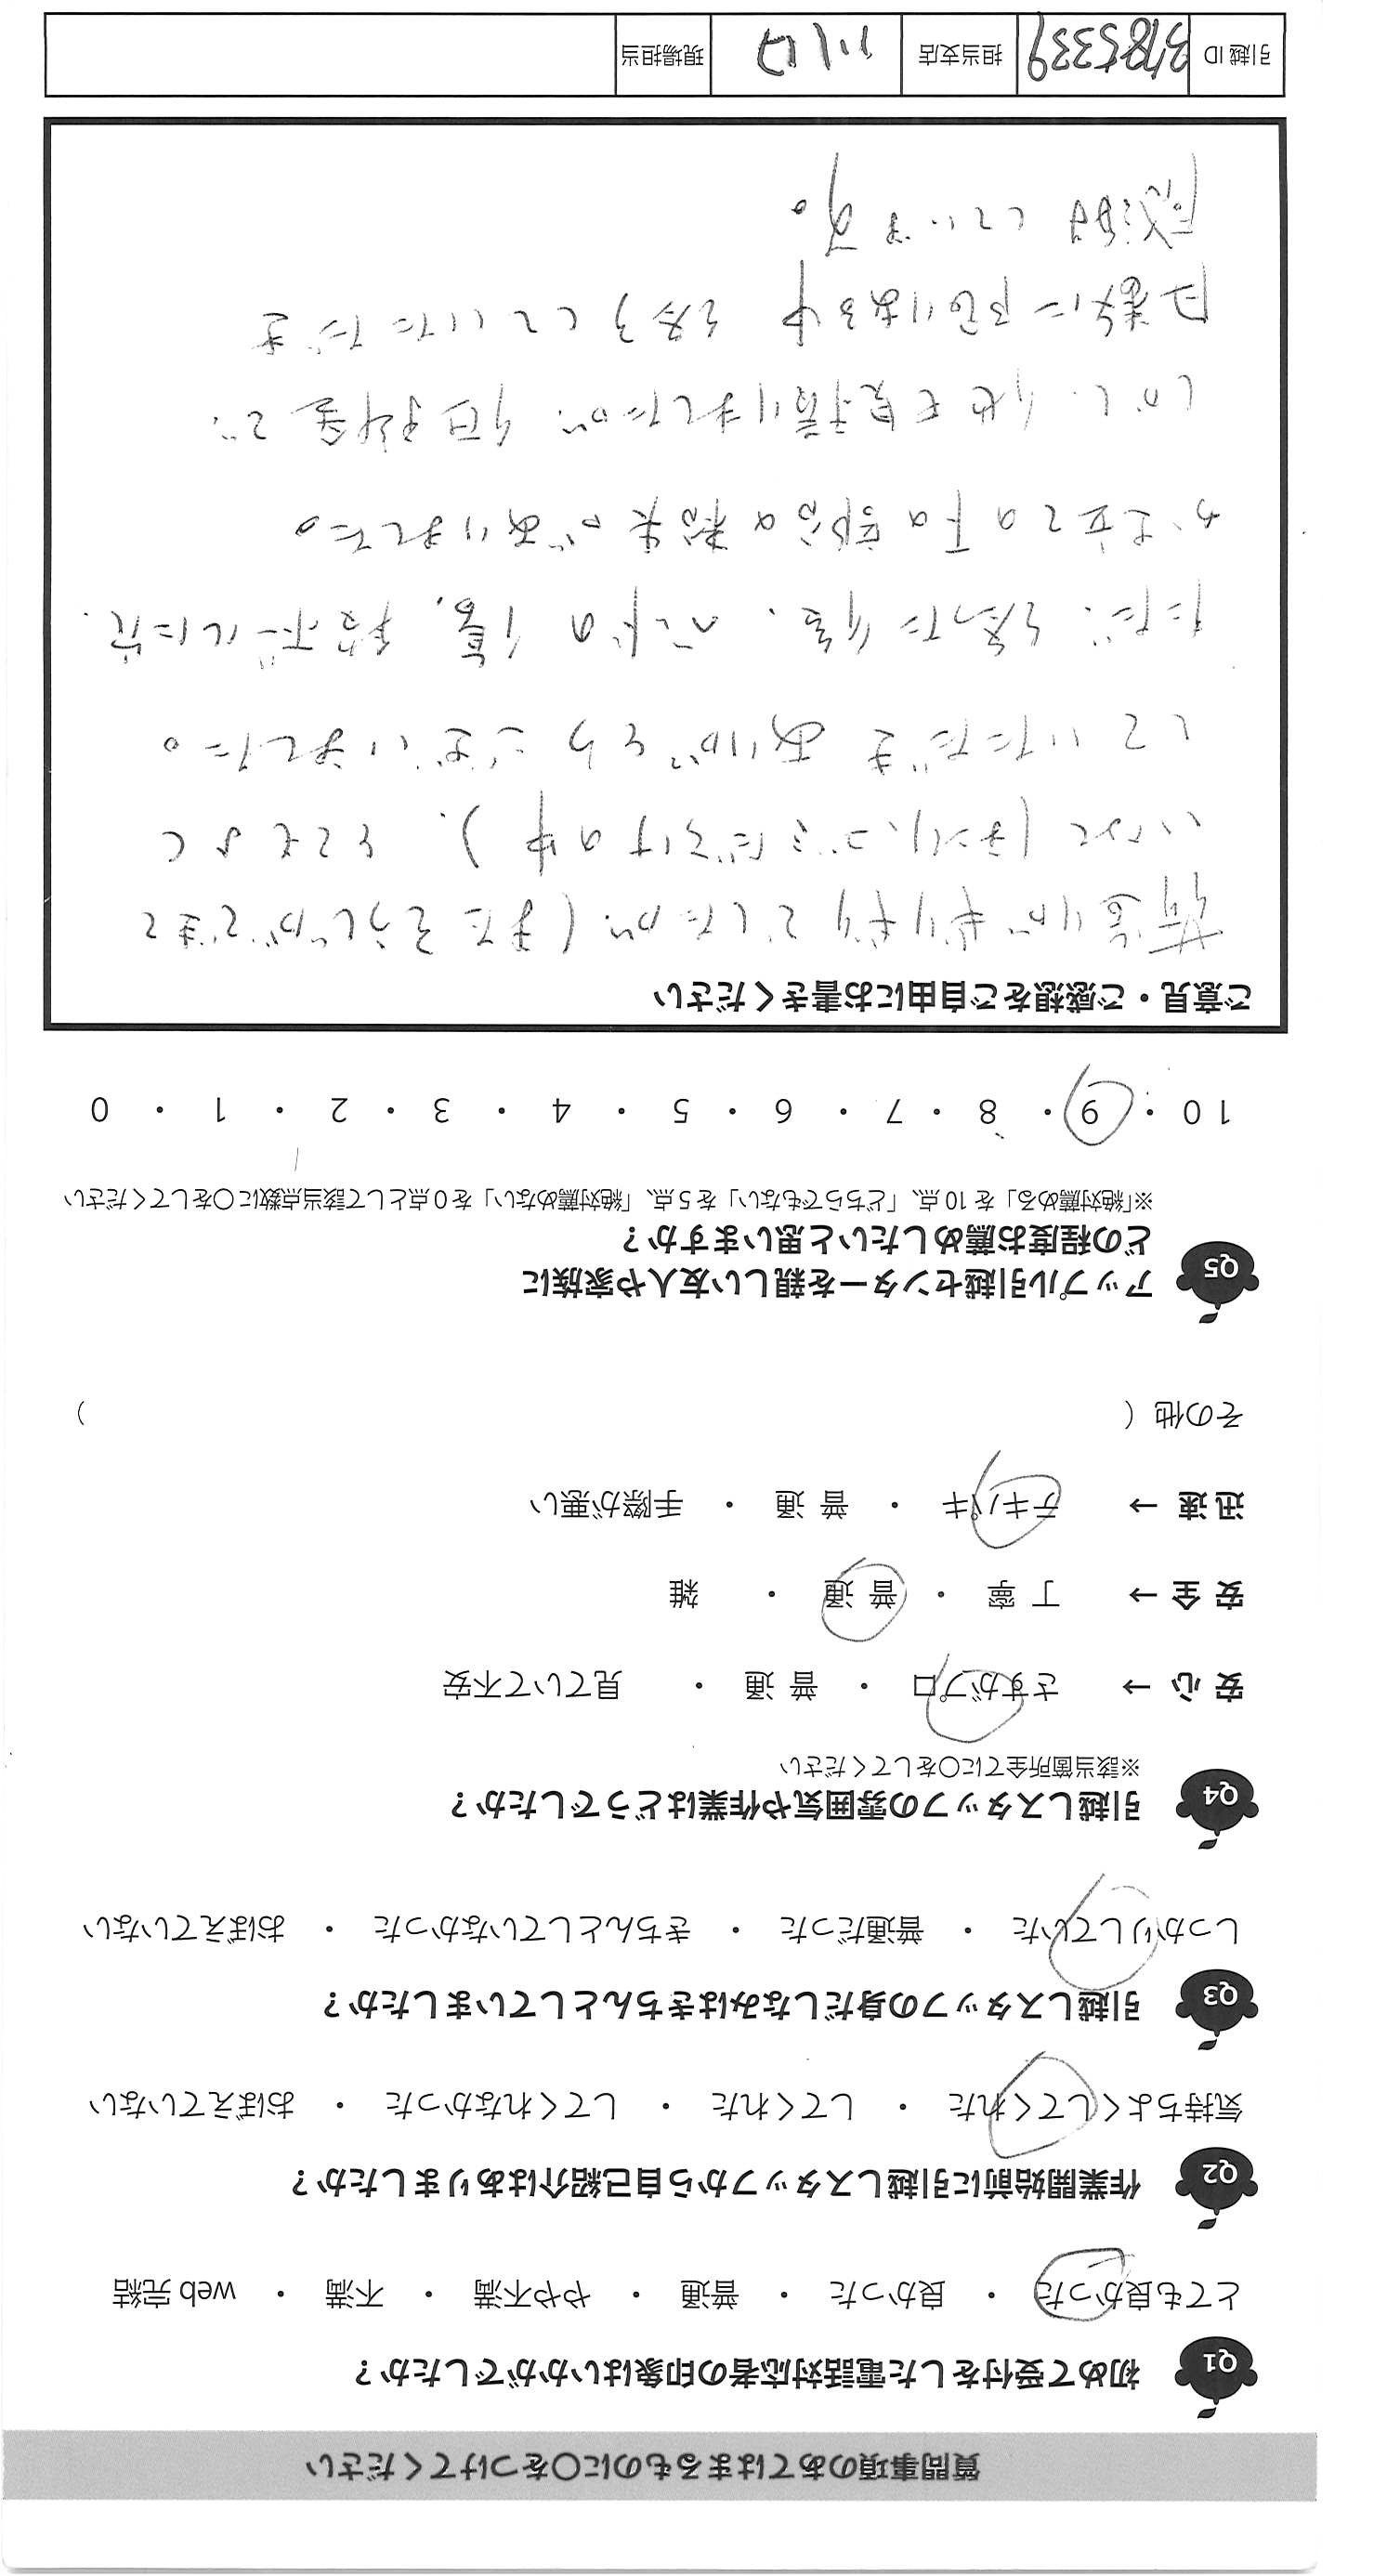 質問事項のあてはまるものに○をつけてください
Q1 初めて受付をした電話対応者の印象はいかがでしたか？
とても良かった ・ 良かった ・ 普通 ・ やや不満 ・ 不満 ・ web 完結
Q2 作業開始前に引越しスタッフから自己紹介はありましたか？
気持ちよくしてくれた ・ してくれた ・ してくれなかった ・ おぼえていない
Q3 引越しスタッフの身だしなみはきちんとしていましたか？
しっかりしていた ・ 普通だった ・ きちんとしていなかった ・ おぼえていない
Q4 引越しスタッフの雰囲気や作業はどうでしたか？
※該当箇所全てに○をしてください
安 心 → さすがプロ ・ 普 通 ・ 見ていて不安
安 全 → 丁 寧 ・ 普 通 ・ 雑
迅 速 → テキパキ ・ 普 通 ・ 手際が悪い
その他（ ）
Q5 アップル引越センターを親しい友人や家族に
どの程度お薦めしたいと思いますか？
※「絶対薦める」を 10 点、「どちらでもない」を 5 点、「絶対薦めない」を 0 点として該当点数に○をしてください
10 ・ 9 ・ 8 ・ 7 ・ 6 ・ 5 ・ 4 ・ 3 ・ 2 ・ 1 ・ 0
ご意見・ご感想をご自由にお書きください
荷造りがギリギリでしたが (まだそうじができて
いなく (ホコリ、ゴミだらけの中)、とてもよく
していただき ありがとうございました。
ただ、 ベッドの傷、段ボールに穴、
の下の部品の紛失がありました。
しかし、他も見積りましたが、料金で、
日数に限りある中 していただき
感謝しています。
引越 ID 3785339 担当支店 川口 現場担当